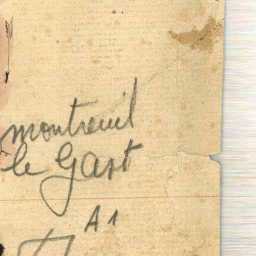 montreuil
le Gast
A1